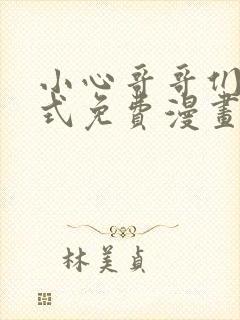 小心哥哥们
式免费漫畫
林美貞